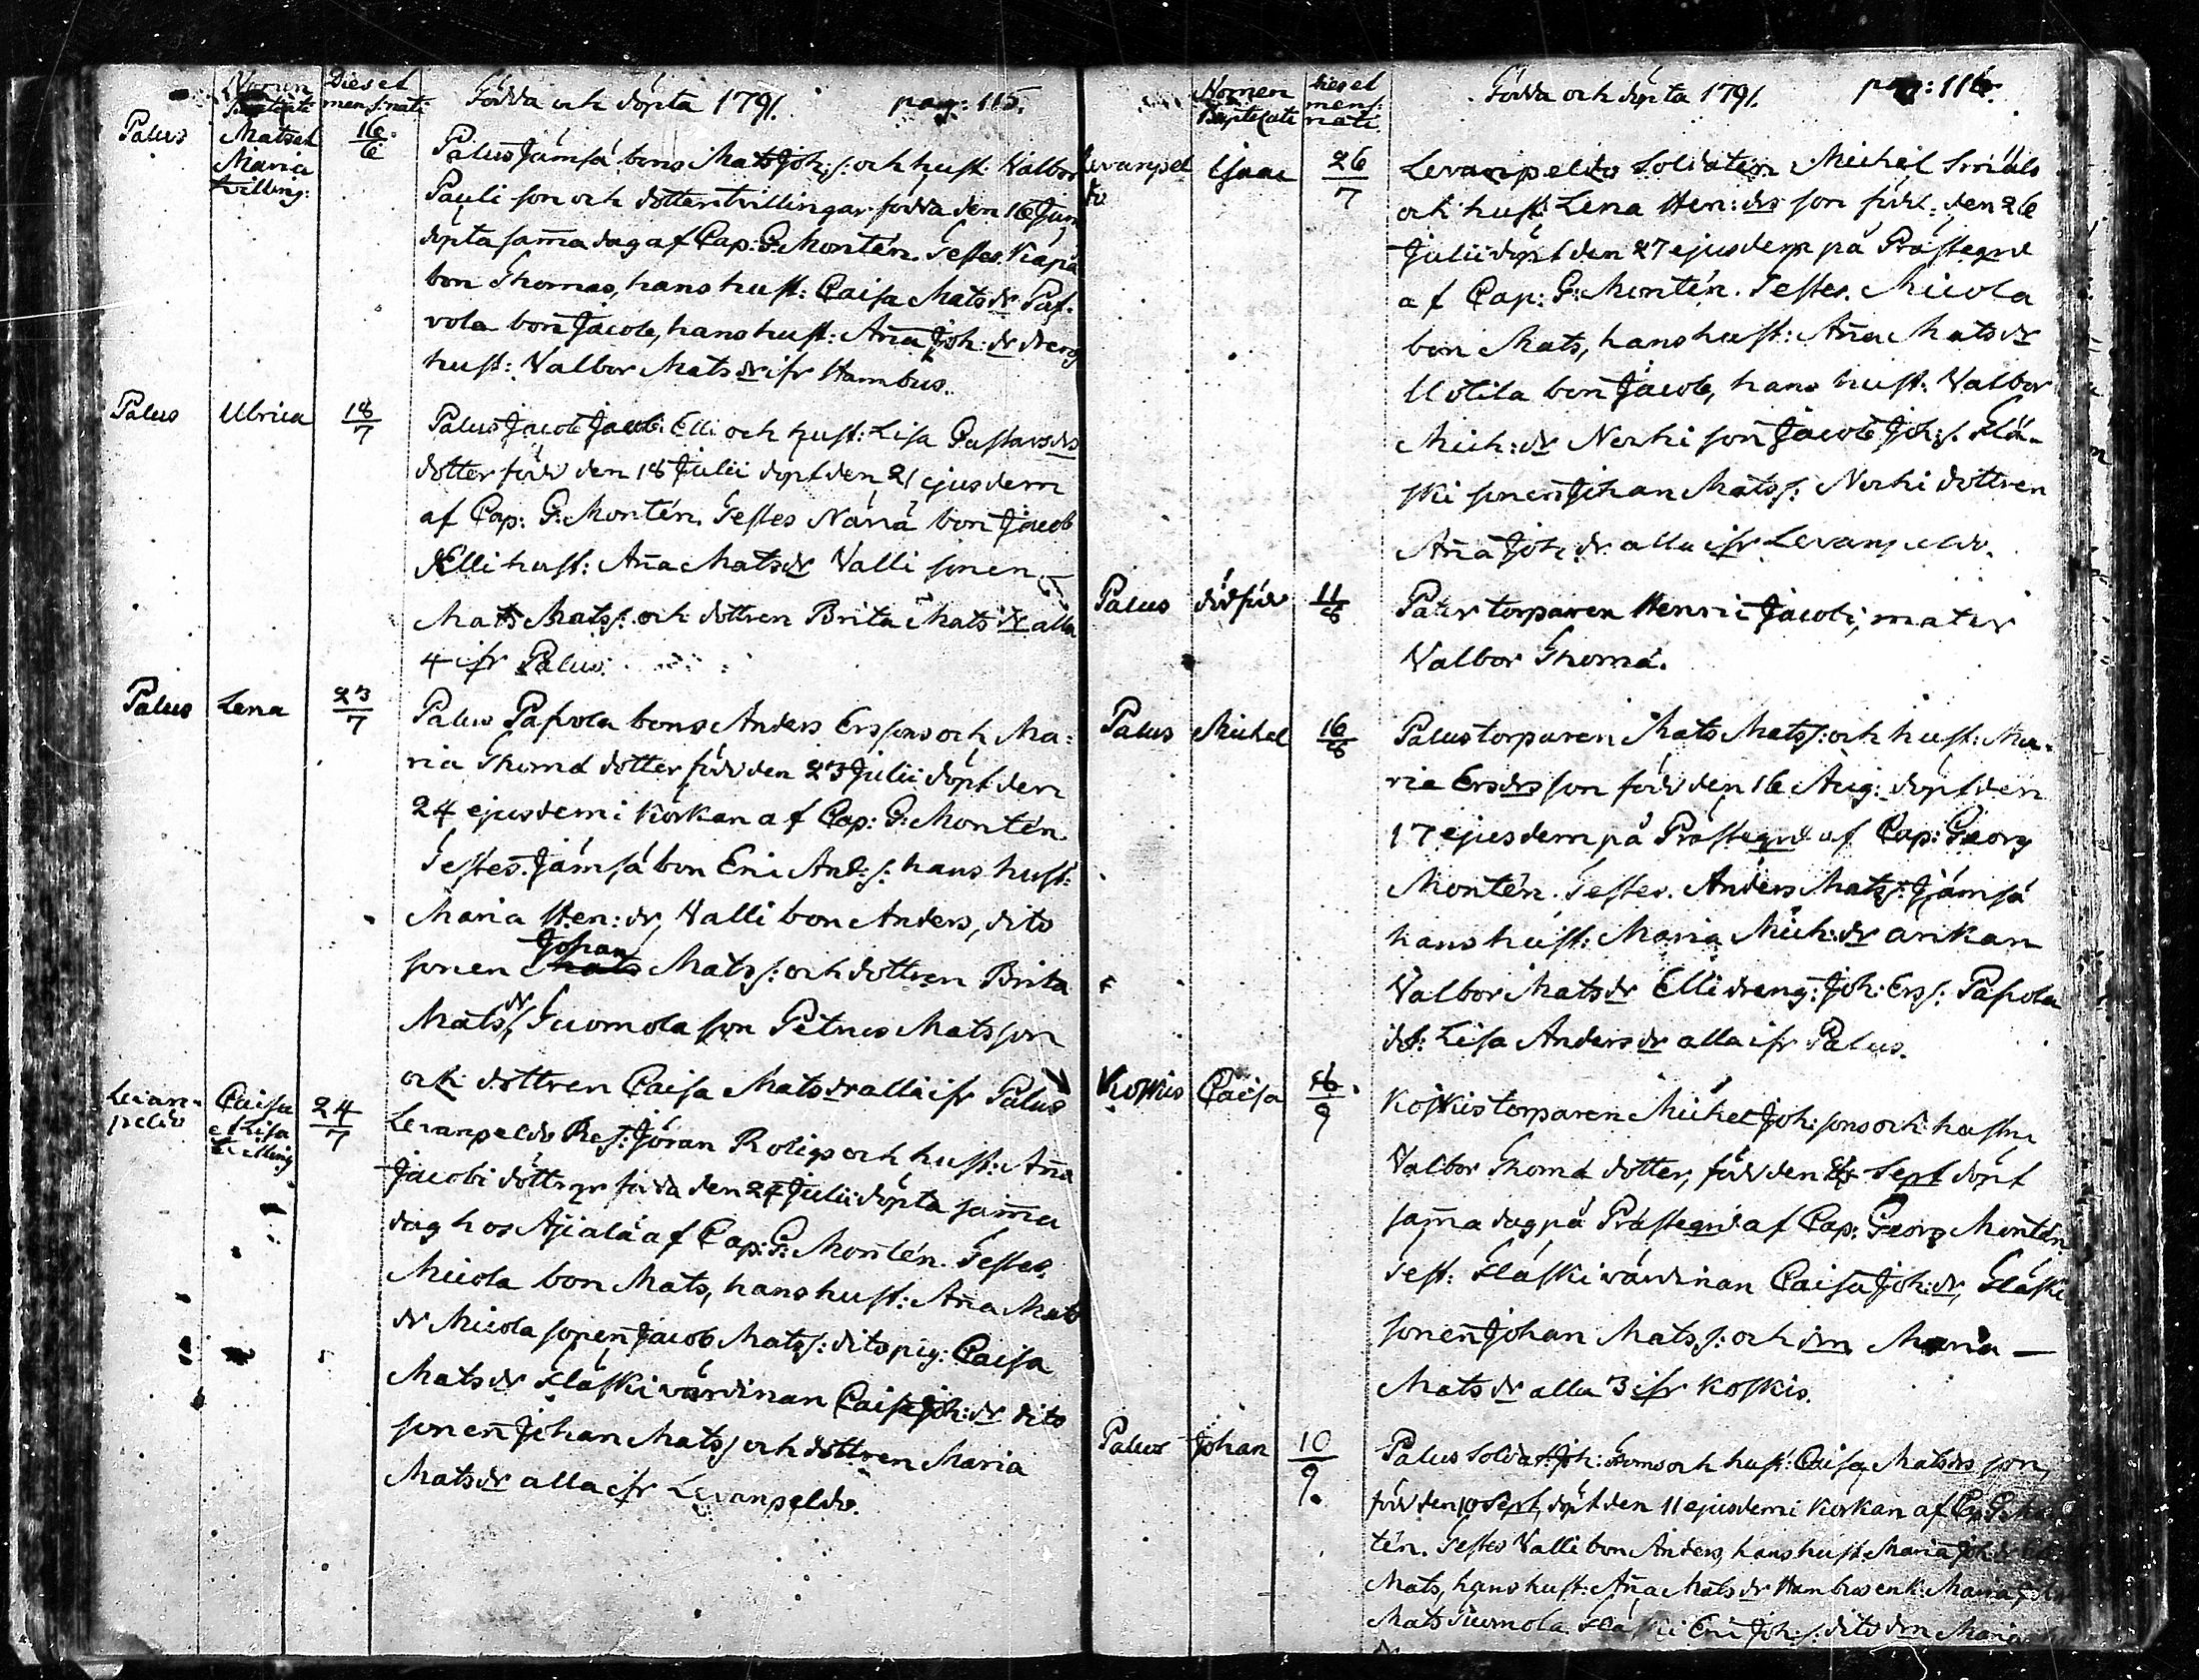 Nomen Dies et Födda och döpta 1791. pag: 115.
mens: nati
Palus Mats et 16/6 Palus Jämsä bons Mats Joh: s. och hust: Valbor
Maria Pauli son och dotter tvillingar födda den 16 Jun
tvilling: döpta sam̄a dag af Cap: G: Montén. Testes. Kiapä
bon Thomas, hans hust: Caisa Mats dr Paf-
vola bon̄ Jacob, hans hust: An̄a Joh: dr dreng
hust: Valbor Mats dr ifr Hambus.
Palus Ulrica 18/7 Palus Jacob Jacob: Elli och hust: Lisa Gustavs drs
dotter född den 18 Julii döpt den 21 ejusdem
af Cap: G: Montén. Testes Nänä bon̄ Jacob
Elli hust: An̄a Mats dr Valli sonen
Mats Mats s: och dottren Brita Mats dr alla
4 ifr Palus.
Palus Lena 23/7 Palus Pafvola bons Anders Ers sons och Ma:
ria Thomæ dotter född den 23 Julii döpt den
24 ejusdem i Körkan af Cap: G: Montén
Testes. Jämsä bon Eric And: s: hans hust:
Maria Hen: dr, Valli bon Anders, dito
sonen Johan Mats s: och dottren Brita
Mats dr, Tuomola son Petrus Mats son
och dottren Caisa Mats dr alla ifr Palus
Levan- Caisa 24/7 Levanpeldo Res: Jöran Roligs och hust: An̄a
peldo et Lisa Jacobi döttrar födda den 24 Julii döpta sam̄a
tvilling dag hos Äjälä af Cap: G: Montén. Testes.
Micola bon Mats, hans hust: An̄a Mats
dr Micola sonen̄ Jacob Mats s: dito pig: Caisa
Mats dr Fläski värdinan Caisa Joh: dr dito
sonen̄ Johan Mats s och dottren Maria
Mats dr alla ifr Levanpeldo.
Nomen Dies et Födda och döpta 1791. pag: 116.
Baptisati mens: nati
Levanpel Isaac 26/7 Levanpeldo Soldaten Michel Smäls
do och hust: Lena Hen: drs son född: den 26
Julii döpt den 27 ejusdem på Prästegrd
af Cap: G: Montén. Testes. Micola
bon Mats, hans hust: An̄a Mats dr
Uotila bon̄ Jacob, hans hust: Valbor
Mich: dr Norki son̄ Jacob Joh: s. Flä-
ski sonen̄ Johan Mats s: Norki dottren
An̄a Joh: dr alla ifr Levanpeldo.
Palus dödföd 11/8 Pater torparen Henric Jacobi, mater
Valbor Thomæ.
Palus Michel 16/8 Palus torparen Mats Mats s: och hust: Ma-
ria Ers drs son född den 16 Aug: döpt den
17 ejusdem på Prästegrd af Cap: Georg
Montén. Testes. Anders Mats s: Jämsä
hans hust: Maria Mich: dr ankan
Valbor Mats dr Elli dreng: Joh: Ers s: Pafvola
dot: Lisa Anders dr alla ifr Palus.
Koskis Caisa Koskis torparen Michel Joh: sons och hustru
Valbor Thomæ dotter, född den Sept döpt
sam̄a dag på Prästegrd af Cap: Georg Montén
Test: Fläski värdinan Caisa Joh: dr, Fläski
sonen̄ Johan Mats s: och drn Maria —
Mats dr alla 3 ifr Koskis.
Palus Johan 10/9. Palus Soldat Joh: och hust: Caisa Mats drs son,
född den 10 Sept, döpt den 11 ejusdem i Körkan af Cap G: Mon
tén. Testes Valli bon Anders, hans hust: Maria Joh: dr
Mats, hans hust: An̄a Mats dr Hambus enk: Maria
Mats Tuomola Fläski Eric Joh: s: dito drn Maria